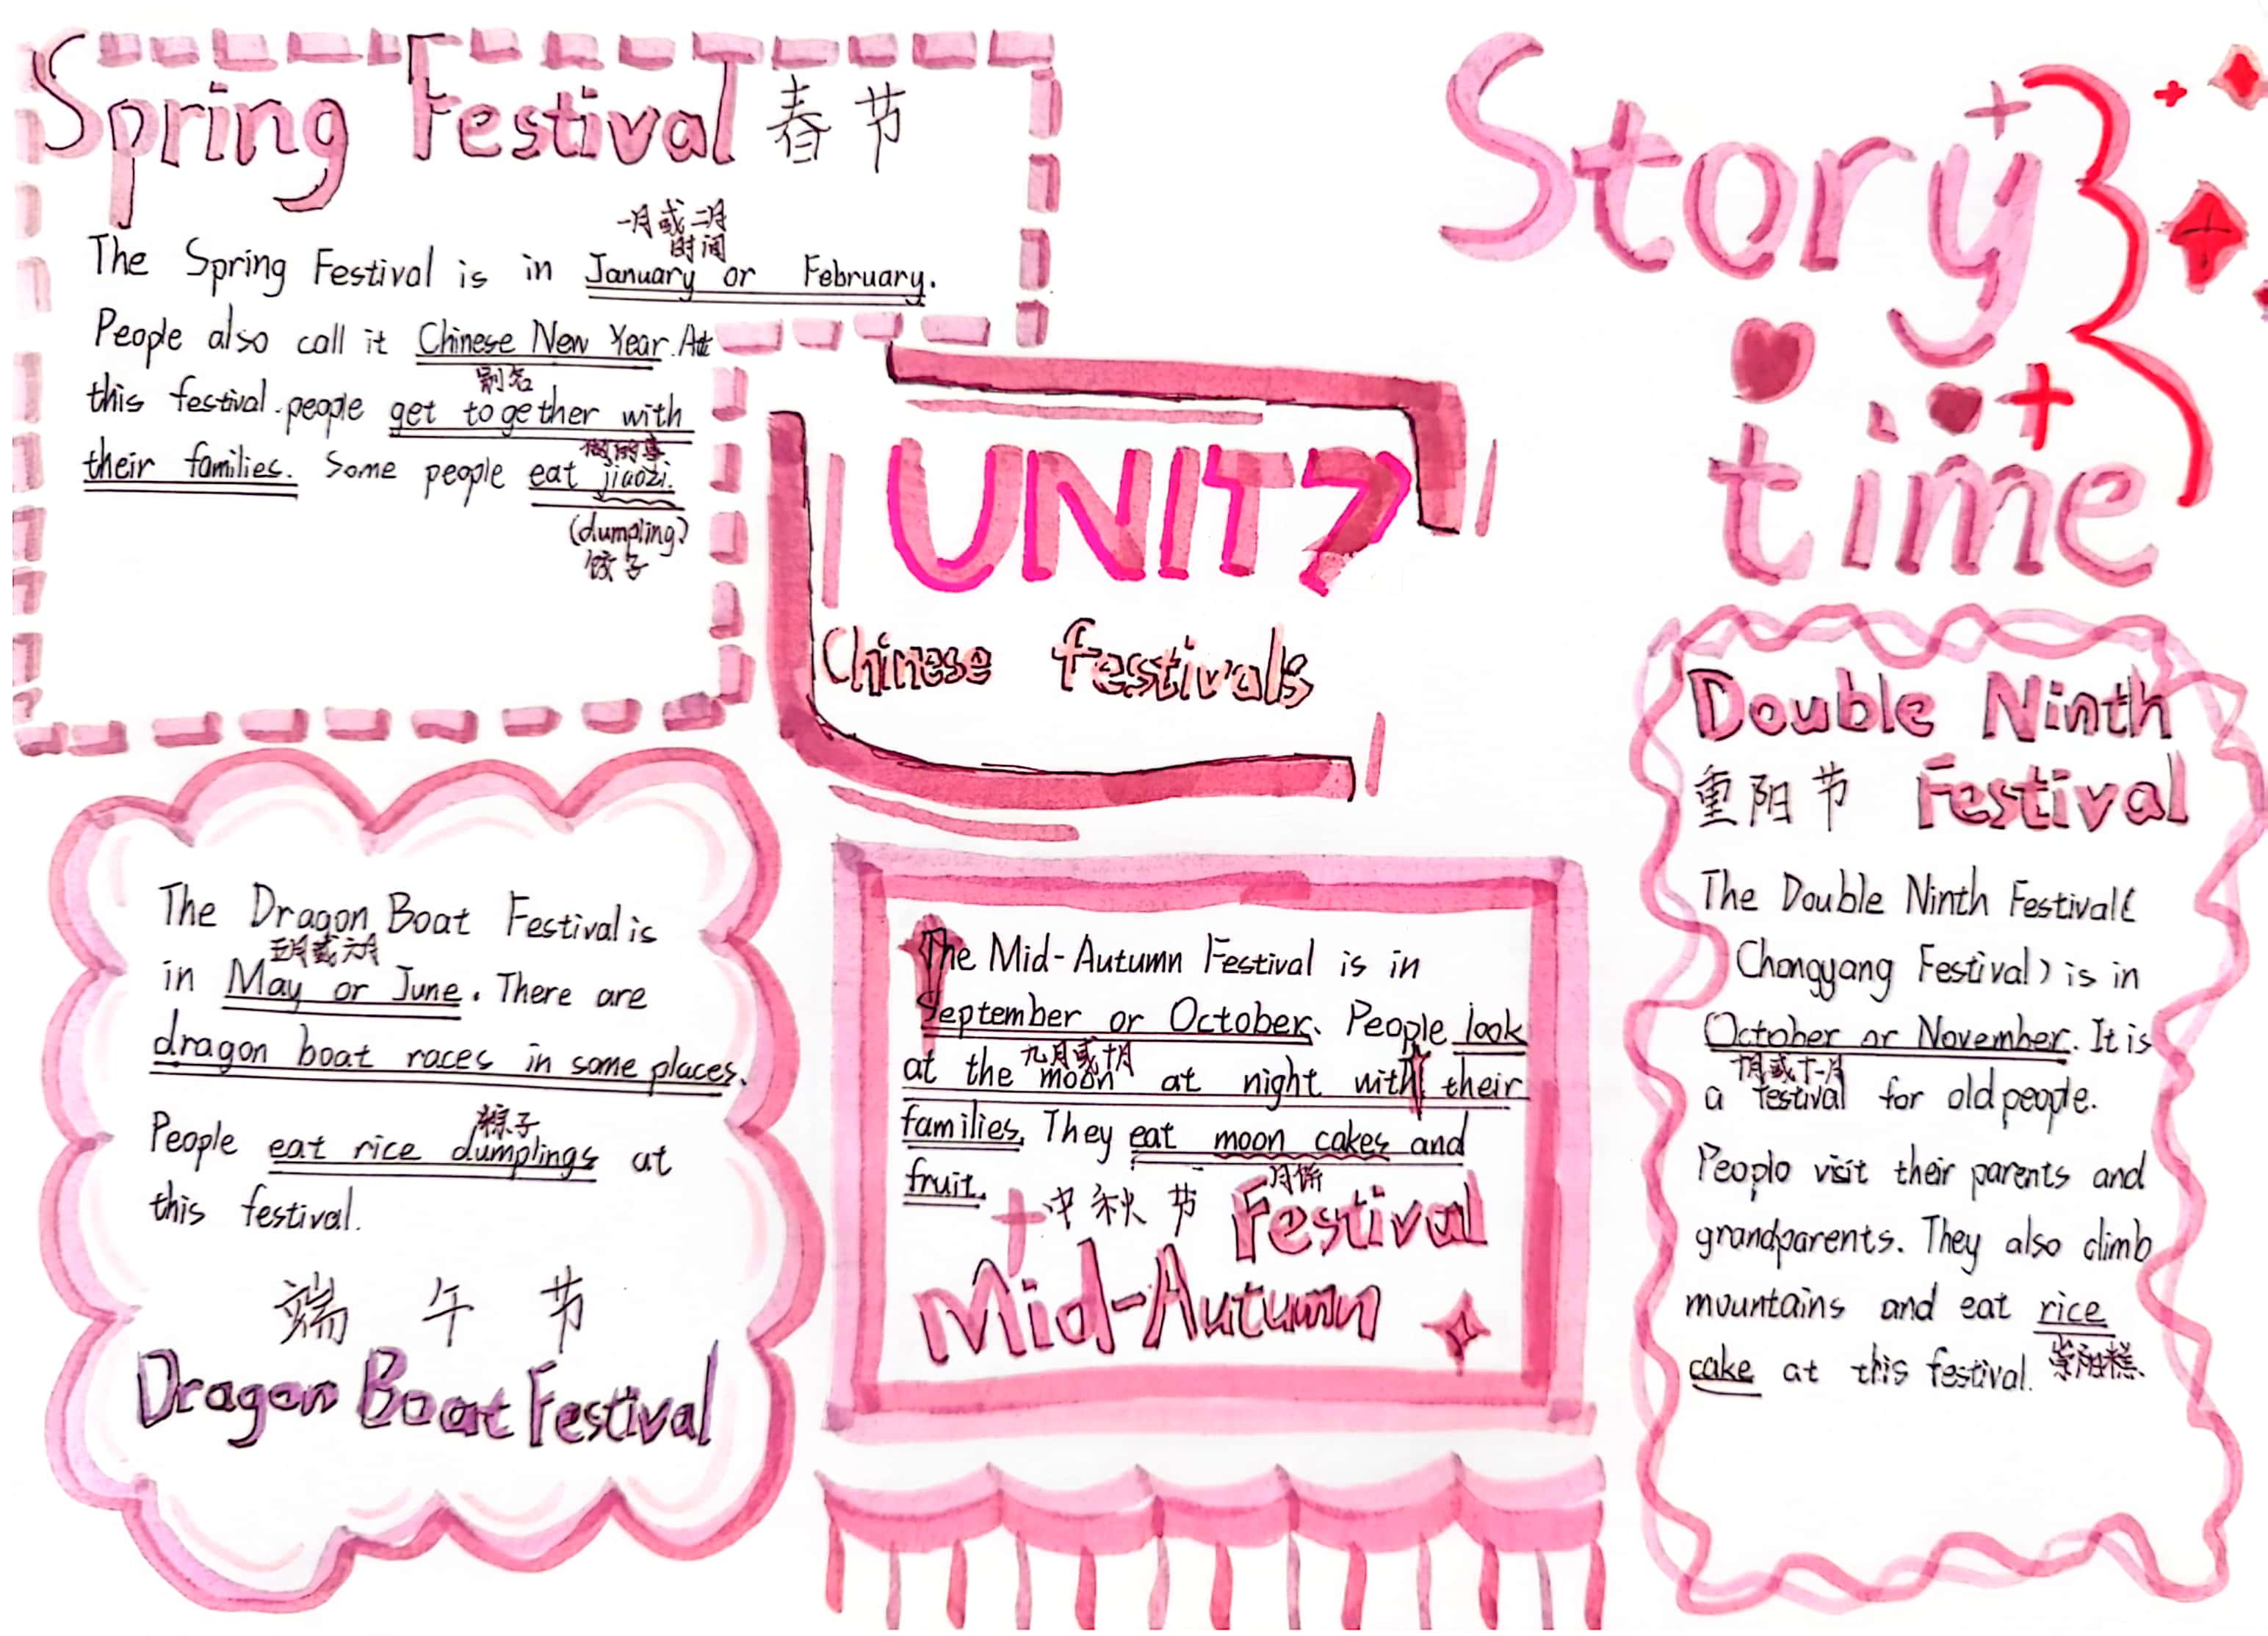 Spring Festival 春节
一月或二月
时间
The Spring Festival is in January or February.
People also call it Chinese New Year. At
别名
this festival.people get together with
做的事
their families. Some people eat jiaozi.
(dumpling)
饺子
Story
time
UNIT7
Chinese festivals
The Dragon Boat Festival is
五月或六月
in May or June. There are
dragon boat races in some places.
粽子
People eat rice dumplings at
this festival.
端午节
Dragon Boat Festival
The Mid-Autumn Festival is in
September or October. People look
九月或十月
at the moon at night with their
families. They eat moon cakes and
月饼
fruit.
中秋节 Festival
Mid-Autumn
Double Ninth
重阳节 Festival
The Double Ninth Festival(
Chongyang Festival) is in
October or November. It is
十月或十一月
a festival for old people.
Peoplo visit their parents and
grandparents. They also climb
mountains and eat rice
cake at this festival.